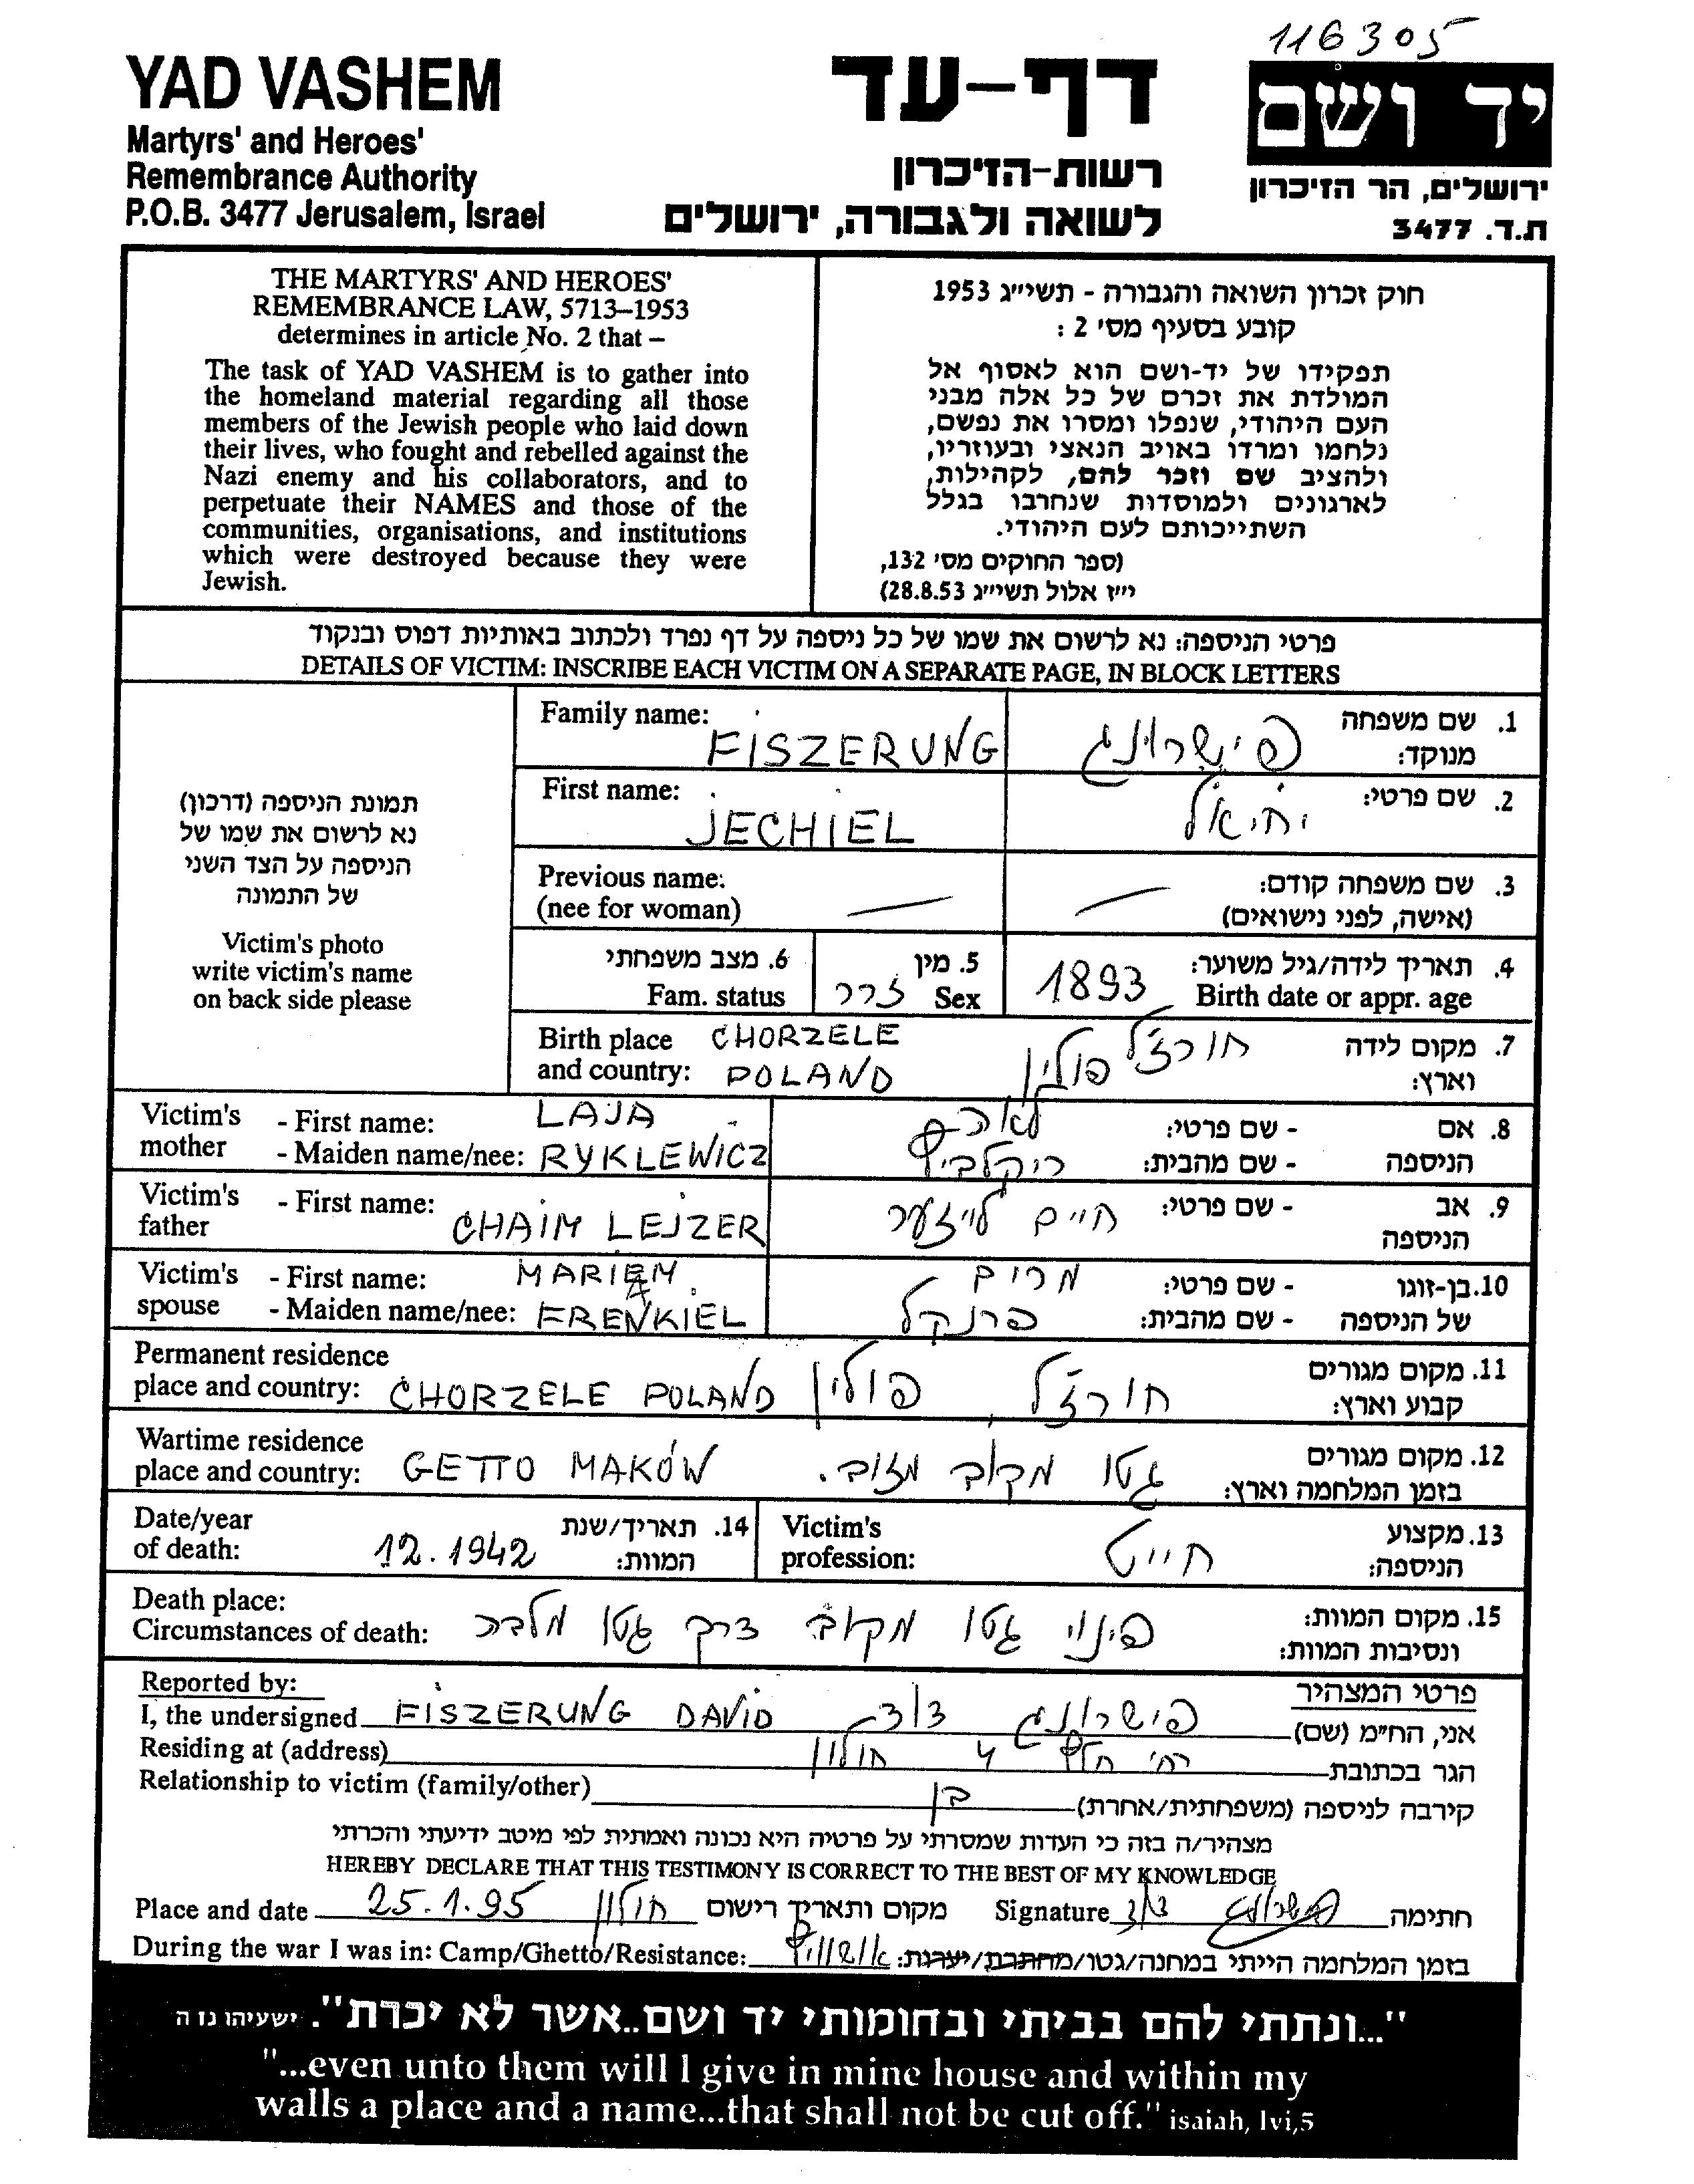 116305
YAD VASHEM
Martyrs' and Heroes'
Remembrance Authority
P.O.B. 3477 Jerusalem, Israel
דף-עד
רשות-הזיכרון
לשואה ולגבורה, ירושלים
יד ושם
ירושלים, הר הזיכרון
ת.ד. 3477
THE MARTYRS' AND HEROES'
REMEMBRANCE LAW, 5713–1953
determines in article No. 2 that –
The task of YAD VASHEM is to gather into
the homeland material regarding all those
members of the Jewish people who laid down
their lives, who fought and rebelled against the
Nazi enemy and his collaborators, and to
perpetuate their NAMES and those of the
communities, organisations, and institutions
which were destroyed because they were
Jewish.
חוק זכרון השואה והגבורה - תשי״ג 1953
קובע בסעיף מס׳ 2 :
תפקידו של יד-ושם הוא לאסוף אל
המולדת את זכרם של כל אלה מבני
העם היהודי, שנפלו ומסרו את נפשם,
נלחמו ומרדו באויב הנאצי ובעוזריו,
ולהציב שם וזכר להם, לקהילות,
לארגונים ולמוסדות שנחרבו בגלל
השתייכותם לעם היהודי.
(ספר החוקים מס׳ 132,
י״ז אלול תשי״ג 28.8.53)
פרטי הניספה: נא לרשום את שמו של כל ניספה על דף נפרד ולכתוב באותיות דפוס ובנקוד
DETAILS OF VICTIM: INSCRIBE EACH VICTIM ON A SEPARATE PAGE, IN BLOCK LETTERS
תמונת הניספה (דרכון)
נא לרשום את שמו של
הניספה על הצד השני
של התמונה
Victim's photo
write victim's name
on back side please
Family name: FISZERUNG פישרונג 1. שם משפחה
מנוקד:
First name: JECHIEL יחיאל 2. שם פרטי:
Previous name: 3. שם משפחה קודם:
(nee for woman) (אישה, לפני נישואים)
6. מצב משפחתי 5. מין 4. תאריך לידה/גיל משוער:
Fam. status זכר Sex 1893 Birth date or appr. age
Birth place CHORZELE חורז'ל 7. מקום לידה
and country: POLAND פולין וארץ:
Victim's - First name: LAJA לאה 8. אם - שם פרטי:
mother - Maiden name/nee: RYKLEWICZ ריקלביץ הניספה - שם מהבית:
Victim's - First name: CHAIM LEJZER חיים לייזער 9. אב - שם פרטי:
father הניספה
Victim's - First name: MARIAM מרים 10. בן-זוגו - שם פרטי:
spouse - Maiden name/nee: FRENKIEL פרנקל של הניספה - שם מהבית:
Permanent residence 11. מקום מגורים
place and country: CHORZELE POLAND חורז'ל, פולין קבוע וארץ:
Wartime residence 12. מקום מגורים
place and country: GETTO MAKÓW גטו מקוב מזוב. בזמן המלחמה וארץ:
Date/year 14. תאריך/שנת Victim's 13. מקצוע
of death: 12.1942 המוות: profession: חייט הניספה:
Death place: 15. מקום המוות:
Circumstances of death: פינוי גטו מקוב דרך גטו מלבה ונסיבות המוות:
Reported by: פרטי המצהיר
I, the undersigned FISZERUNG DAVID פישרונג דוד אני, הח״מ (שם)
Residing at (address) רח' 4 חולון הגר בכתובת
Relationship to victim (family/other) בן קירבה לניספה (משפחתית/אחרת)
מצהיר/ה בזה כי העדות שמסרתי על פרטיה היא נכונה ואמתית לפי מיטב ידיעתי והכרתי
HEREBY DECLARE THAT THIS TESTIMONY IS CORRECT TO THE BEST OF MY KNOWLEDGE
Place and date 25.1.95 חולון מקום ותאריך רישום Signature פישרונג דוד חתימה
During the war I was in: Camp/Ghetto/Resistance: אושוויץ בזמן המלחמה הייתי במחנה/גטו/מחתרת/יערות:
"...ונתתי להם בביתי ובחומותי יד ושם..אשר לא יכרת". ישעיהו נז ה
"...even unto them will I give in mine house and within my
walls a place and a name...that shall not be cut off." isaiah, lvi,5